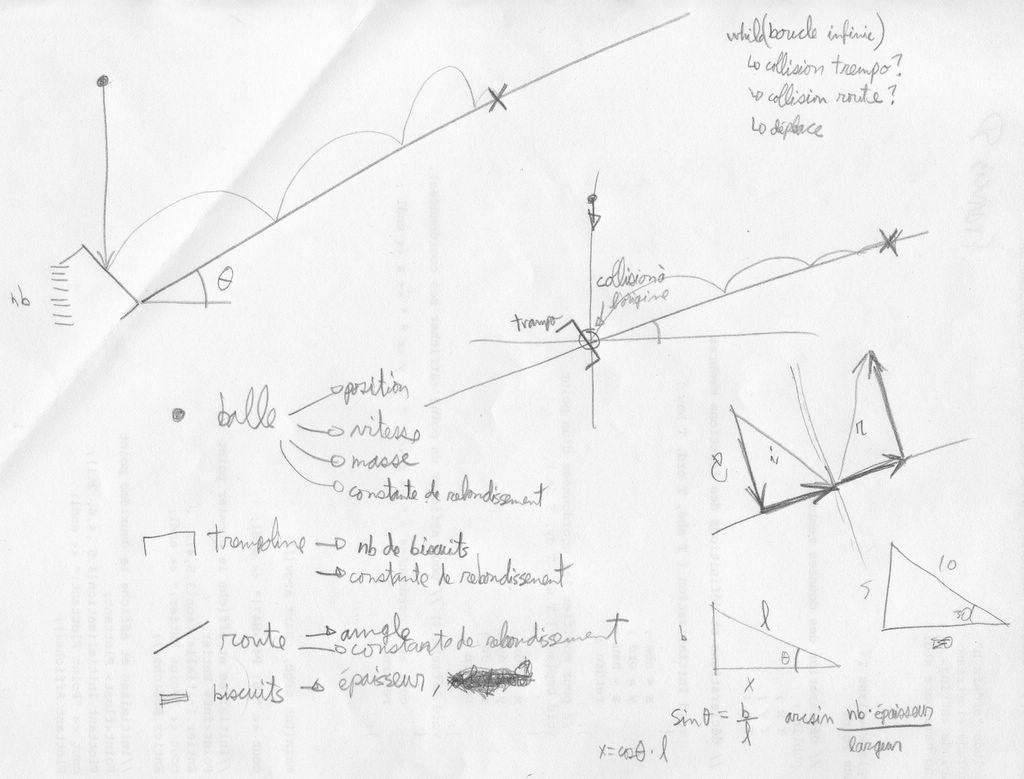 while(boucle infinie)
↳ collision trempo?
↳ collision route?
↳ déplace
θ
nb
collision à
l'origine
trampo
balle
→ position
→ vitesse
→ masse
→ constante de rebondissement
trempoline → nb de biscuits
→ constante de rebondissement
route → angle
→ constante de rebondissement
biscuits → épaisseur,
r
5
10
30
b
l
θ
x
sinθ = b/l
arcsin nb·épaisseur
largeur
x=cosθ·l